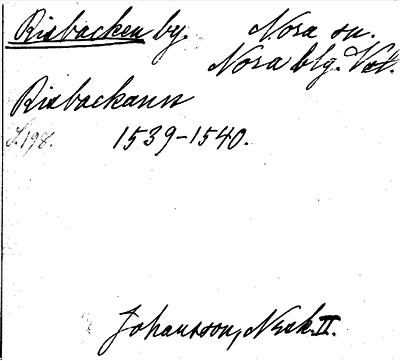 Risbacken by. Nora sn.
Nora blg. Vstl.
Risbackann
S.198. 1539-1540.
Johansson, Norask. II.